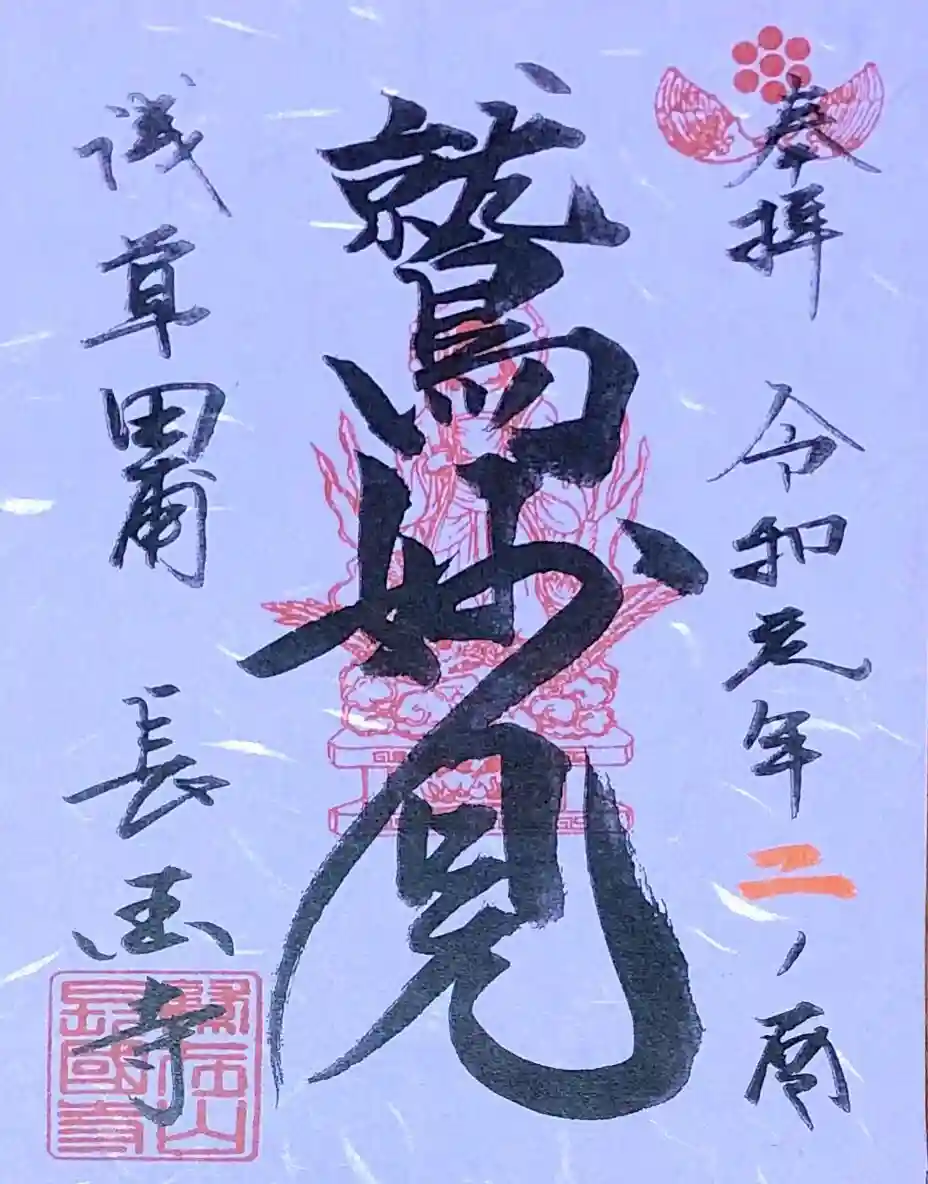 奉拝 令和元年二ノ酉
鷲妙見
浅草田甫 長国寺
鷲在山
長國寺